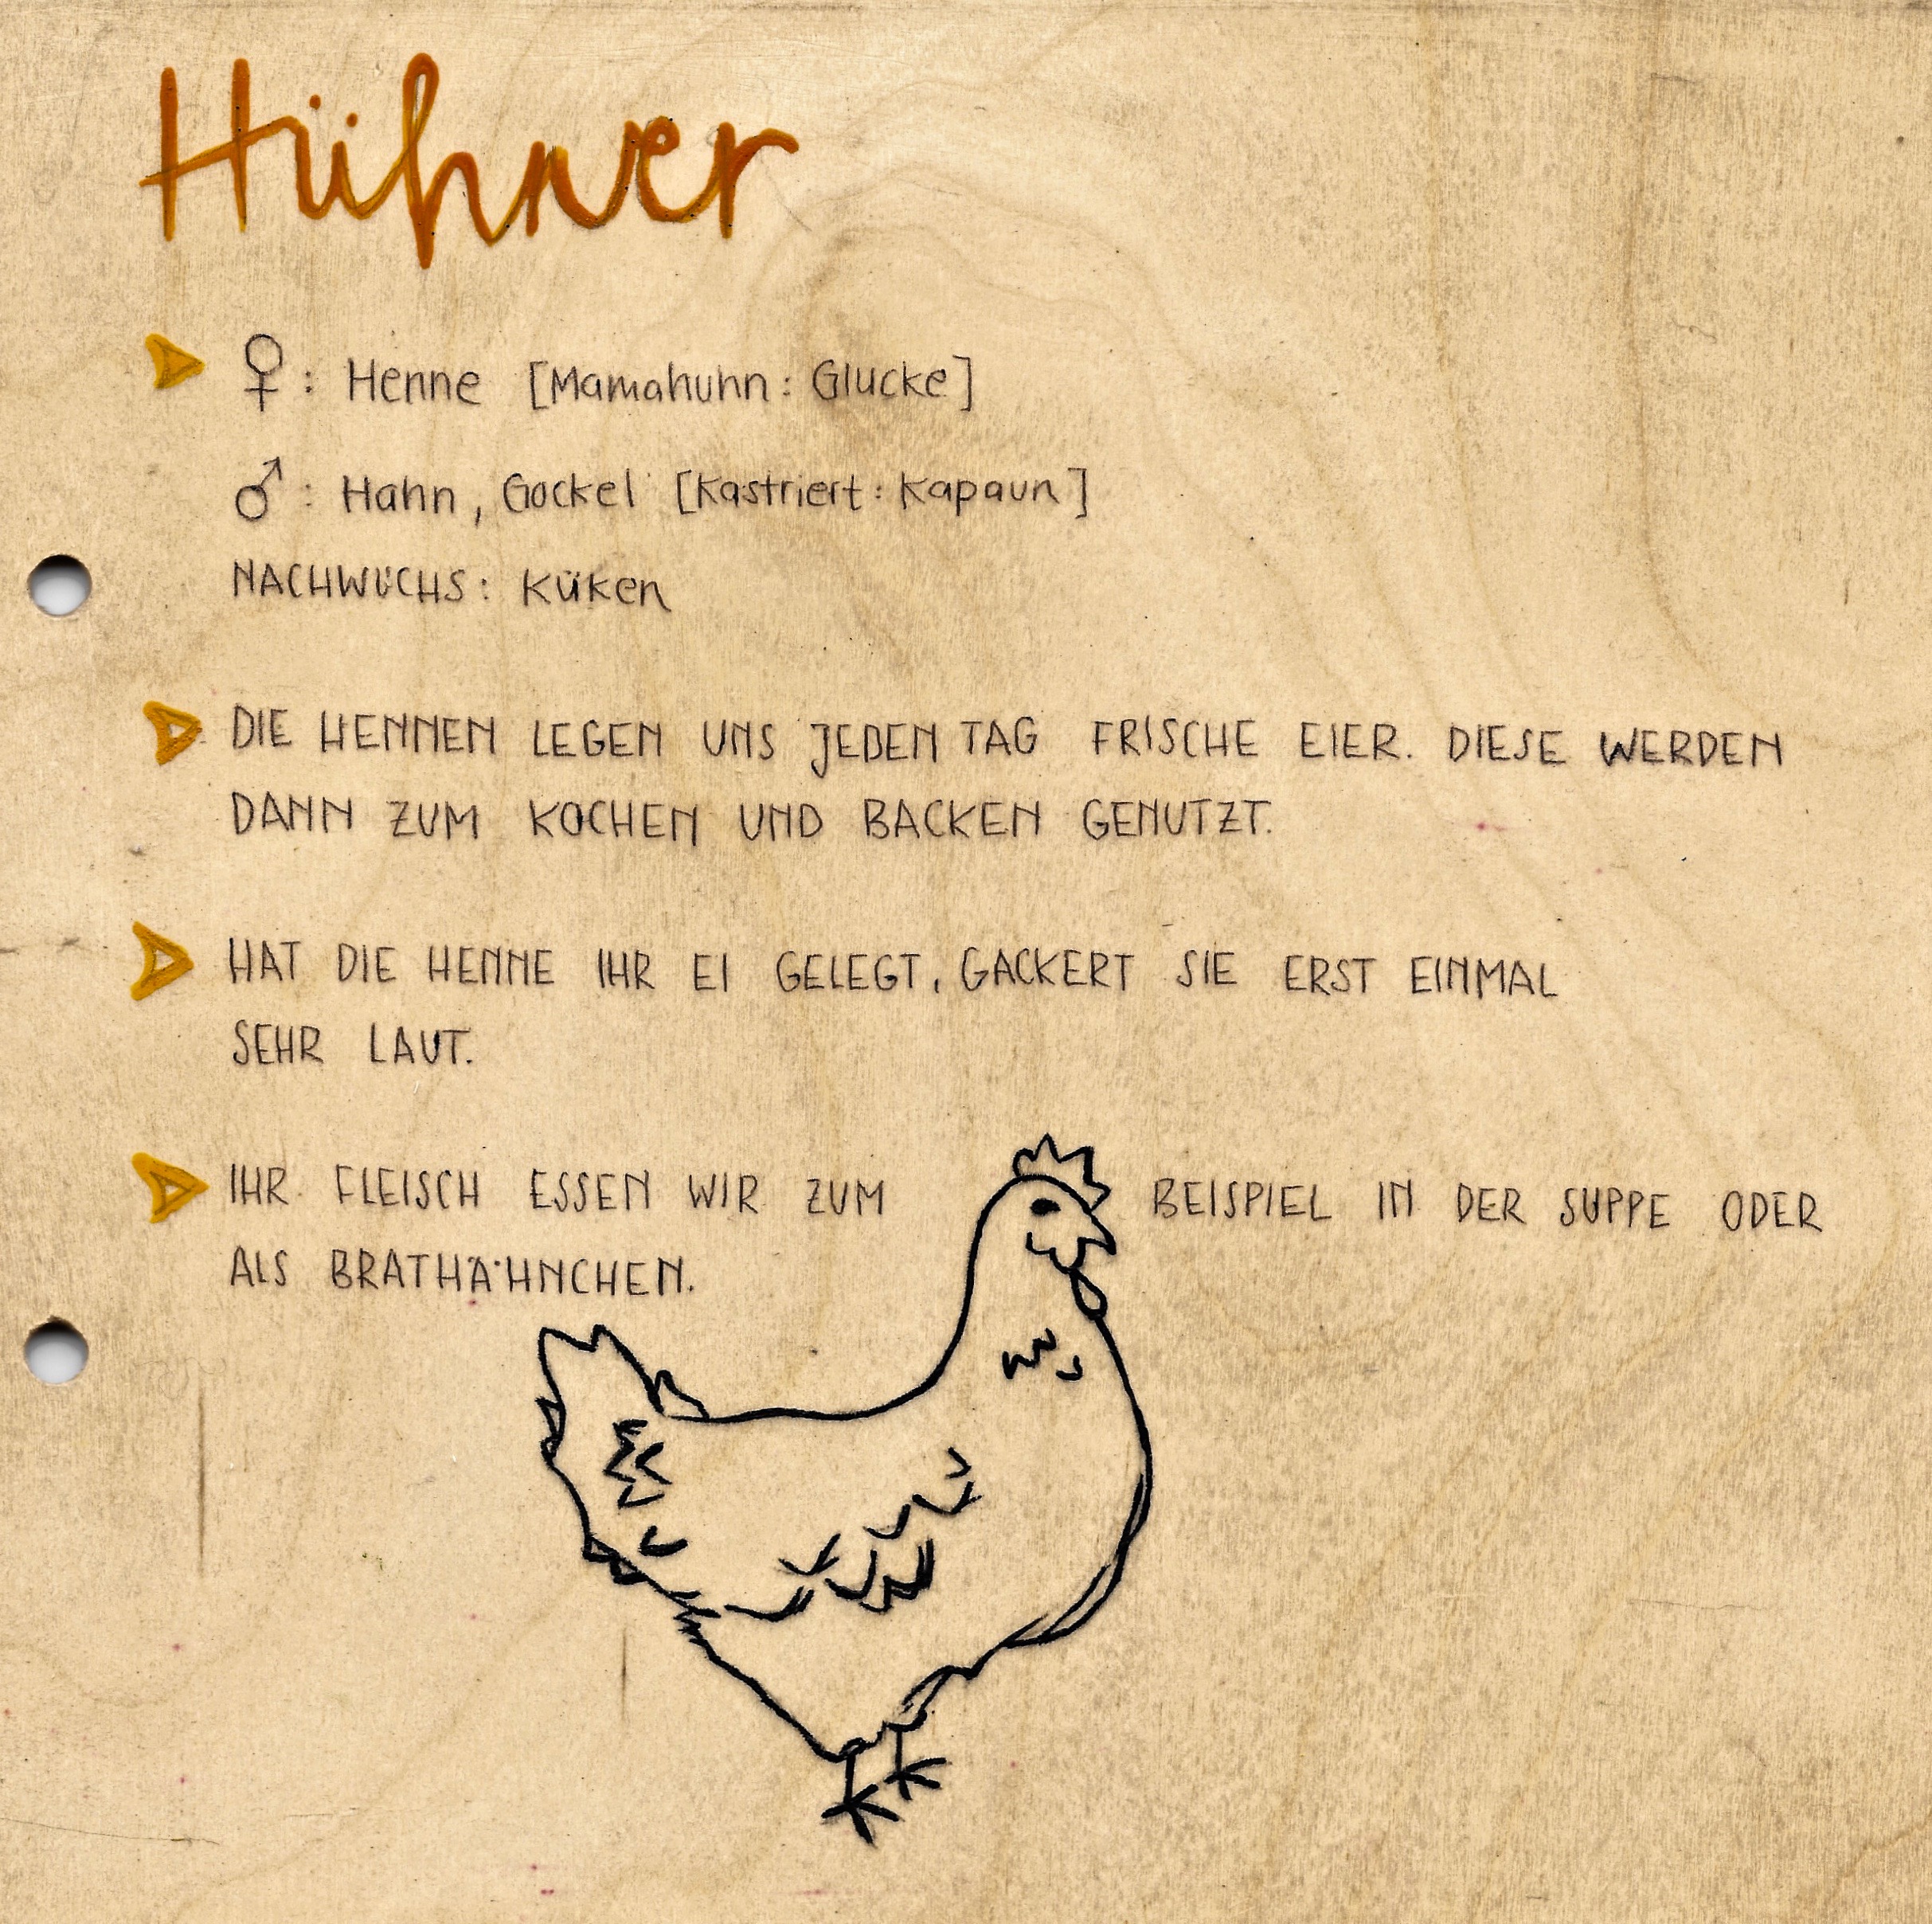 Hühner
♀: Henne [Mamahuhn: Glucke]
♂: Hahn, Gockel [Kastriert: Kapaun]
NACHWUCHS: Küken
DIE HENNEN LEGEN UNS JEDEN TAG FRISCHE EIER. DIESE WERDEN
DANN ZUM KOCHEN UND BACKEN GENUTZT.
HAT DIE HENNE IHR EI GELEGT, GACKERT SIE ERST EINMAL
SEHR LAUT.
IHR FLEISCH ESSEN WIR ZUM BEISPIEL IN DER SUPPE ODER
ALS BRATHÄHNCHEN.